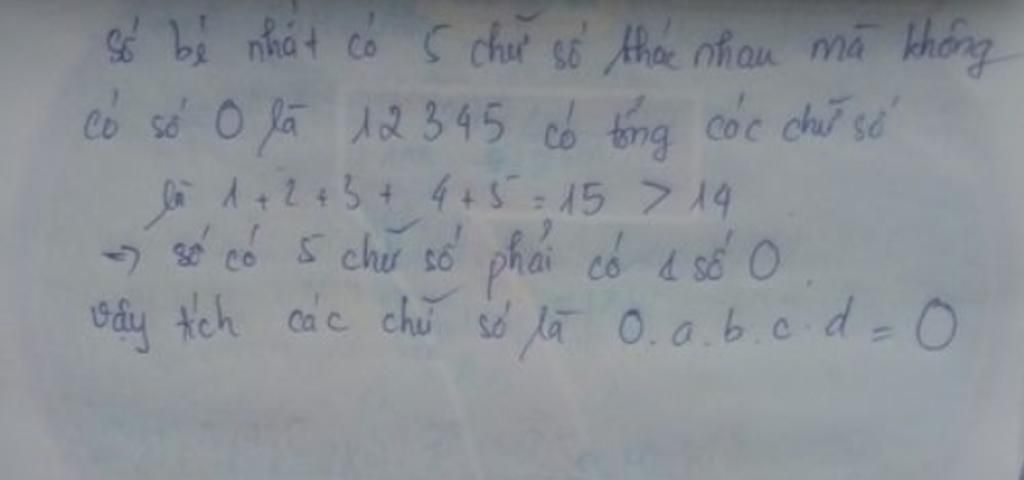 số bé nhất có 5 chữ số khác nhau mà không
có số 0 là 12345 có tổng các chữ số
là 1 + 2 + 3 + 4 + 5 = 15 > 14
=> số có 5 chữ số phải có 1 số 0.
vậy tích các chữ số là 0.a.b.c.d = 0